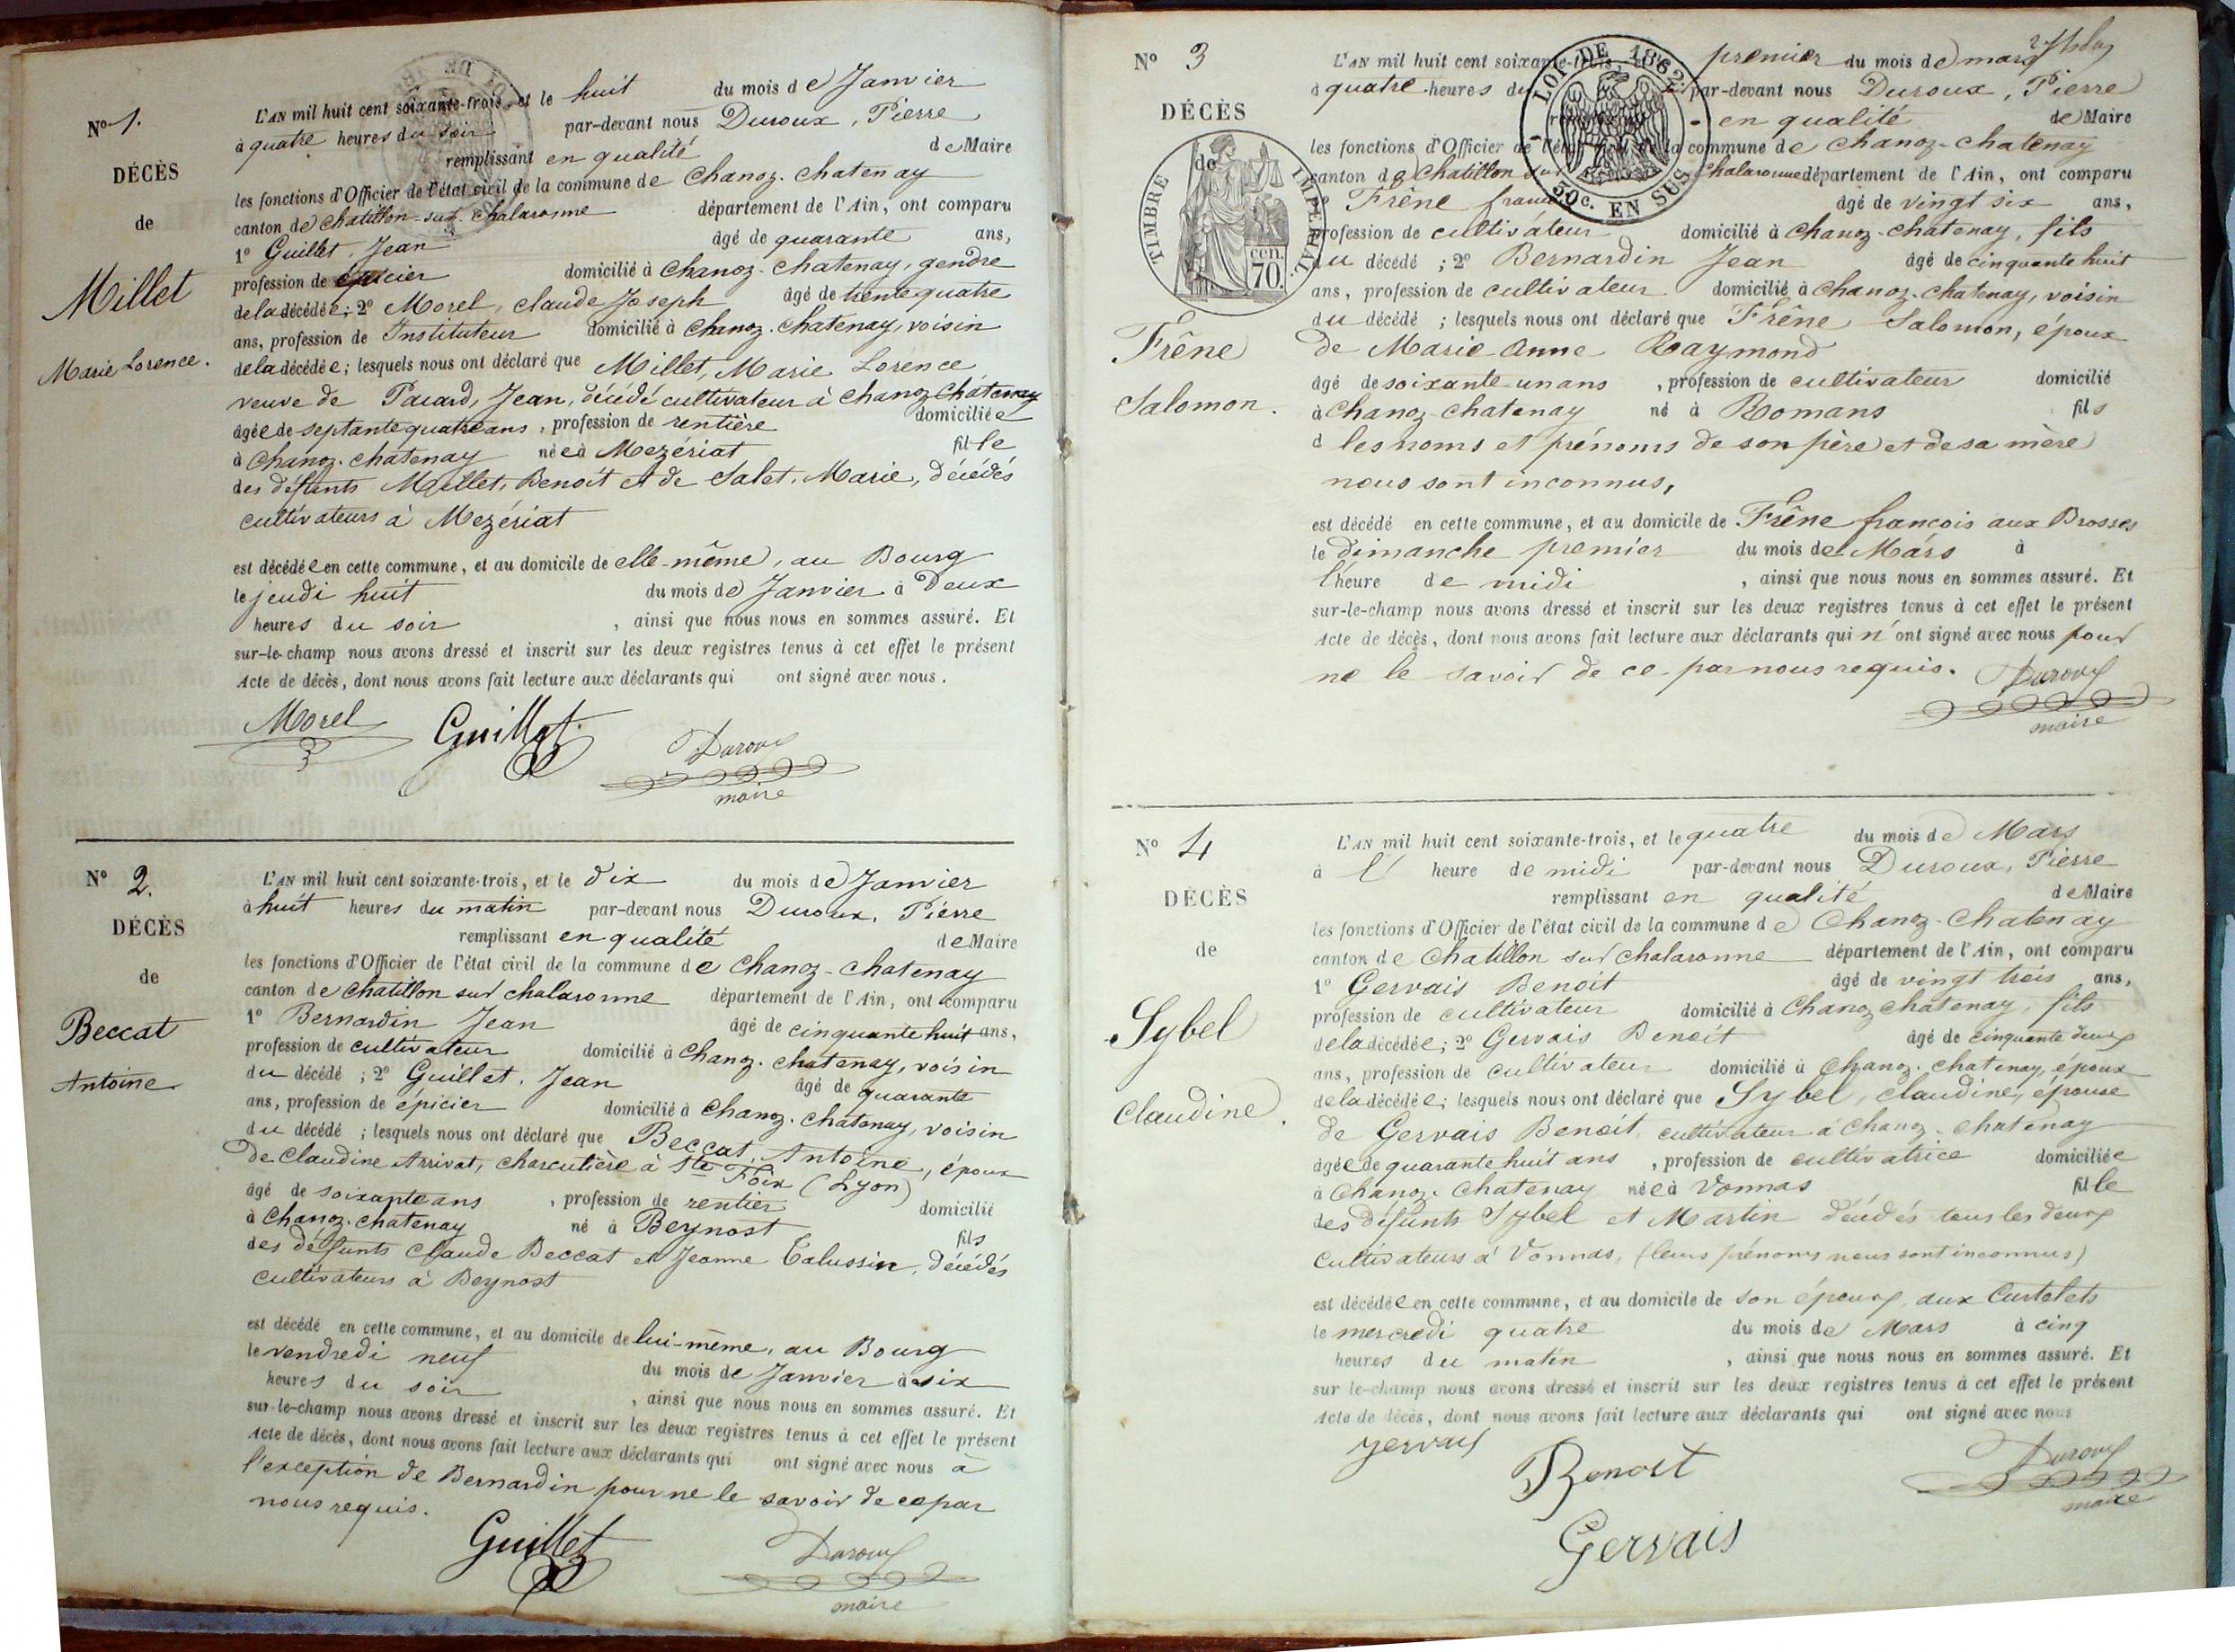 N° 1.
DÉCÈS
de
Millet
Marie Lorence.
L'AN mil huit cent soixante-trois, et le huit du mois de Janvier
à quatre heures du soir par-devant nous Duroux, Pierre
remplissant en qualité de Maire
les fonctions d'Officier de l'état civil de la commune de Chanoz-Chatenay
canton de Chatillon-sur-Chalaronne département de l'Ain, ont comparu
1° Guillet, Jean âgé de quarante ans,
profession de épicier domicilié à Chanoz-Chatenay, gendre
de la décédée; 2° Morel, Claude Joseph âgé de trente quatre
ans, profession de Instituteur domicilié à Chanoz-Chatenay, voisin
de la décédée; lesquels nous ont déclaré que Millet, Marie Lorence
veuve de Pacard, Jean, décédé cultivateur à Chanoz Chatenay
âgée de septante quatre ans, profession de rentière domiciliée
à Chanoz-Chatenay née à Mezériat fille
des défunts Millet, Benoît et de Salet, Marie, décédés
cultivateurs à Mezériat
est décédée en cette commune, et au domicile de elle-même, au Bourg
le jeudi huit du mois de Janvier à Deux
heures du soir, ainsi que nous nous en sommes assuré. Et
sur-le-champ nous avons dressé et inscrit sur les deux registres tenus à cet effet le présent
Acte de décès, dont nous avons fait lecture aux déclarants qui ont signé avec nous.
Morel Guillet Duroux
maire
N° 2.
DÉCÈS
de
Beccat
Antoine
L'AN mil huit cent soixante-trois, et le dix du mois de Janvier
à huit heures du matin par-devant nous Duroux, Pierre
remplissant en qualité de Maire
les fonctions d'Officier de l'état civil de la commune de Chanoz-Chatenay
canton de Chatillon sur Chalaronne département de l'Ain, ont comparu
1° Bernardin Jean âgé de cinquante huit ans,
profession de cultivateur domicilié à Chanoz-Chatenay, voisin
du décédé; 2° Guillet, Jean âgé de quarante
ans, profession de épicier domicilié à Chanoz-Chatenay, voisin
du décédé; lesquels nous ont déclaré que Beccat, Antoine, époux
de Claudine Arrivat, charcutière à Ste Foix (Lyon)
âgé de soixante ans, profession de rentier domicilié
à Chanoz-Chatenay né à Beynost fils
des défunts Claude Beccat et Jeanne Talussin, décédés
cultivateurs à Beynost
est décédé en cette commune, et au domicile de lui-même, au Bourg
le vendredi neuf du mois de Janvier à six
heures du soir, ainsi que nous nous en sommes assuré. Et
sur-le-champ nous avons dressé et inscrit sur les deux registres tenus à cet effet le présent
Acte de décès, dont nous avons fait lecture aux déclarants qui ont signé avec nous à
l'exception de Bernardin pour ne le savoir de ce par
nous requis.
Guillet Duroux
maire
N° 3
DÉCÈS
de
TIMBRE IMPERIAL
70 cen.
LOI DE 1862
50c. EN SUS
Frêne
Salomon.
L'AN mil huit cent soixante-trois, premier du mois de mars
à quatre heures du par-devant nous Duroux, Pierre
en qualité de Maire
les fonctions d'Officier de l'état civil de la commune de Chanoz-Chatenay
canton de Chatillon sur Chalaronne département de l'Ain, ont comparu
Frêne françois âgé de vingt six ans,
profession de cultivateur domicilié à Chanoz-Chatenay, fils
du décédé; 2° Bernardin Jean âgé de cinquante huit
ans, profession de cultivateur domicilié à Chanoz-Chatenay, voisin
du décédé; lesquels nous ont déclaré que Frêne Salomon, époux
de Marie Anne Raymond
âgé de soixante un ans, profession de cultivateur domicilié
à Chanoz-Chatenay né à Romans fils
d les noms et prénoms de son père et de sa mère
nous sont inconnus,
est décédé en cette commune, et au domicile de Frêne françois aux Brosses
le dimanche premier du mois de Mars à
l'heure de midi, ainsi que nous nous en sommes assuré. Et
sur-le-champ nous avons dressé et inscrit sur les deux registres tenus à cet effet le présent
Acte de décès, dont nous avons fait lecture aux déclarants qui n'ont signé avec nous pour
ne le savoir de ce par nous requis. Duroux
maire
N° 4
DÉCÈS
de
Sybel
Claudine.
L'AN mil huit cent soixante-trois, et le quatre du mois de Mars
à l' heure de midi par-devant nous Duroux, Pierre
remplissant en qualité de Maire
les fonctions d'Officier de l'état civil de la commune de Chanoz-Chatenay
canton de Chatillon sur Chalaronne département de l'Ain, ont comparu
1° Gervais Benoit âgé de vingt trois ans,
profession de cultivateur domicilié à Chanoz Chatenay, fils
de la décédée; 2° Gervais Benoît âgé de cinquante deux
ans, profession de cultivateur domicilié à Chanoz-Chatenay, époux
de la décédée; lesquels nous ont déclaré que Sybel, Claudine, épouse
de Gervais Benoit, cultivateur à Chanoz-Chatenay
âgée de quarante huit ans, profession de cultivatrice domiciliée
à Chanoz-Chatenay née à Vonnas fille
des défunts Sybel et Martin décédés tous les deux
cultivateurs à Vonnas, (leurs prénoms nous sont inconnus)
est décédée en cette commune, et au domicile de son époux, aux Curtelets
le mercredi quatre du mois de Mars à cinq
heures du matin, ainsi que nous nous en sommes assuré. Et
sur-le-champ nous avons dressé et inscrit sur les deux registres tenus à cet effet le présent
Acte de décès, dont nous avons fait lecture aux déclarants qui ont signé avec nous
gervais Benoit Duroux
maire
Gervais